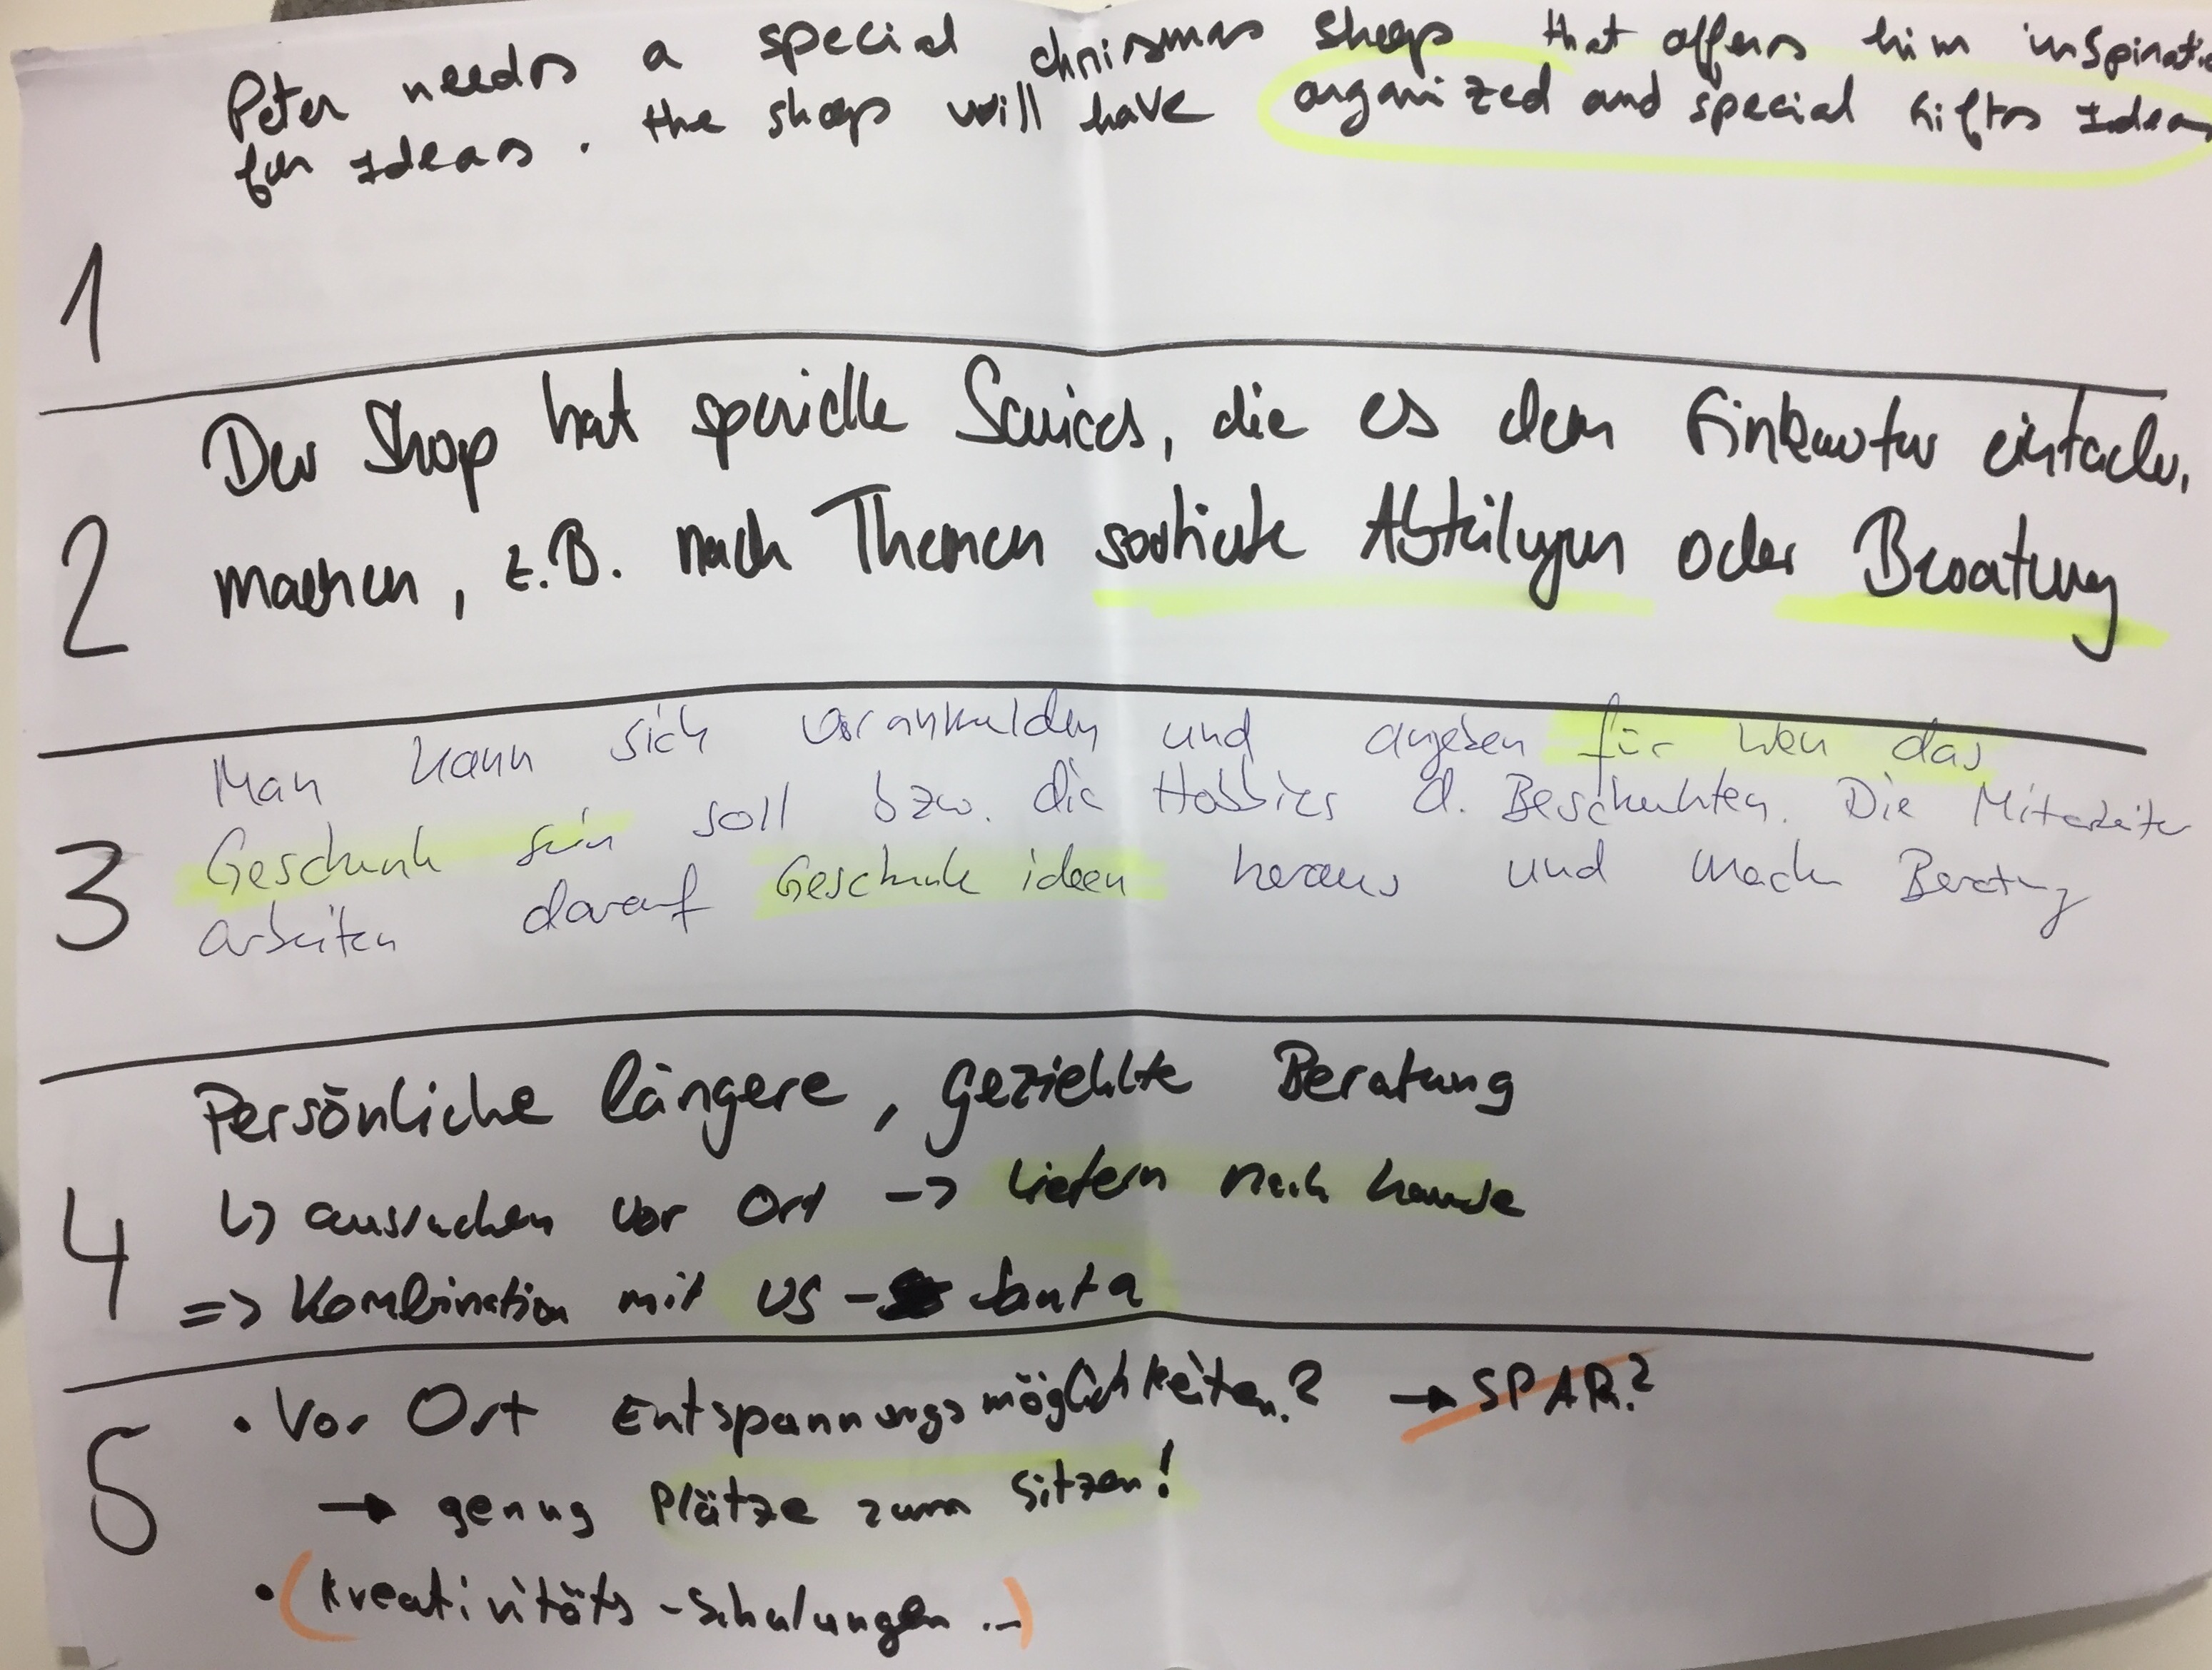 Peter needs a special chrismas shop that offers him inspiratio
for Ideas. the shop will have organized and special Gifts Ideas
1
Der Shop hat spezielle Services, die es dem Einkäufer einfach.
machen, z.B. nach Themen sortierte Abteilungen oder Beratung
2
Man kann sich voranmelden und angeben für wen das
Geschenk sein soll bzw. die Hobbies d. Beschenkten. Die Mitarbeiter
arbeiten darauf Geschenkideen heraus und machen Beratung
3
Persönliche längere, geziehlte Beratung
↳ aussuchen vor Ort -> liefern nach hause
4
=> Kombination mit US - Santa
5
• Vor Ort Entspannungsmöglichkeiten? → SPAR?
→ genug Plätze zum Sitzen!
• (Kreativitäts-Schulungen ..)